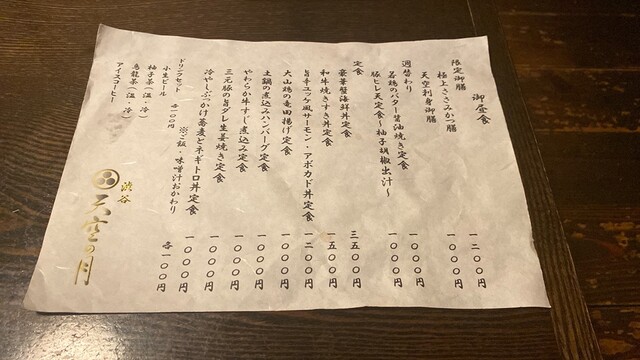 御昼食
限定御膳
極上ささみかつ膳 一二〇〇円
天空刺身御膳 一〇〇〇円
週替わり
若鶏のバター醤油焼き定食 一〇〇〇円
豚ヒレ天定食〜柚子胡椒出汁〜 一〇〇〇円
定食
豪華蟹海鮮丼定食 三五〇〇円
和牛焼きすき丼定食 一五〇〇円
旨辛ユッケ風サーモン・アボカド丼定食 一二〇〇円
大山鶏の竜田揚げ定食 一〇〇〇円
土鍋の煮込みハンバーグ定食 一〇〇〇円
やわらか牛すじ煮込み定食 一〇〇〇円
三元豚の旨ダレ生姜焼き定食 一〇〇〇円
冷やしぶっかけ蕎麦とネギトロ丼定食 一〇〇〇円
※ご飯・味噌汁おかわり 各一〇〇円
ドリンクセット 各一〇〇円
小生ビール
柚子茶（温・冷）
烏龍茶（温・冷）
アイスコーヒー
渋谷
天空の月